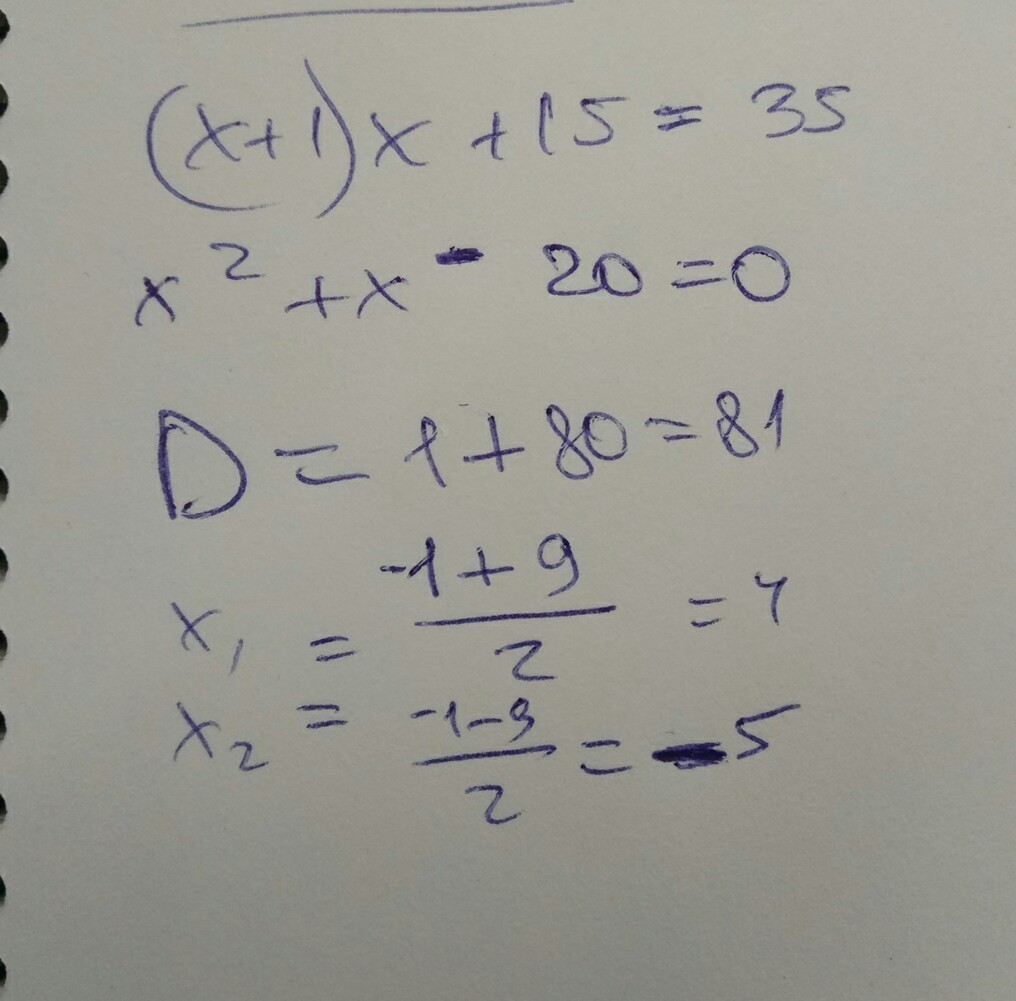 (x+1)x+15=35
x²+x-20=0
D=1+80=81
x₁=(-1+9)/2=4
x₂=(-1-9)/2=-5